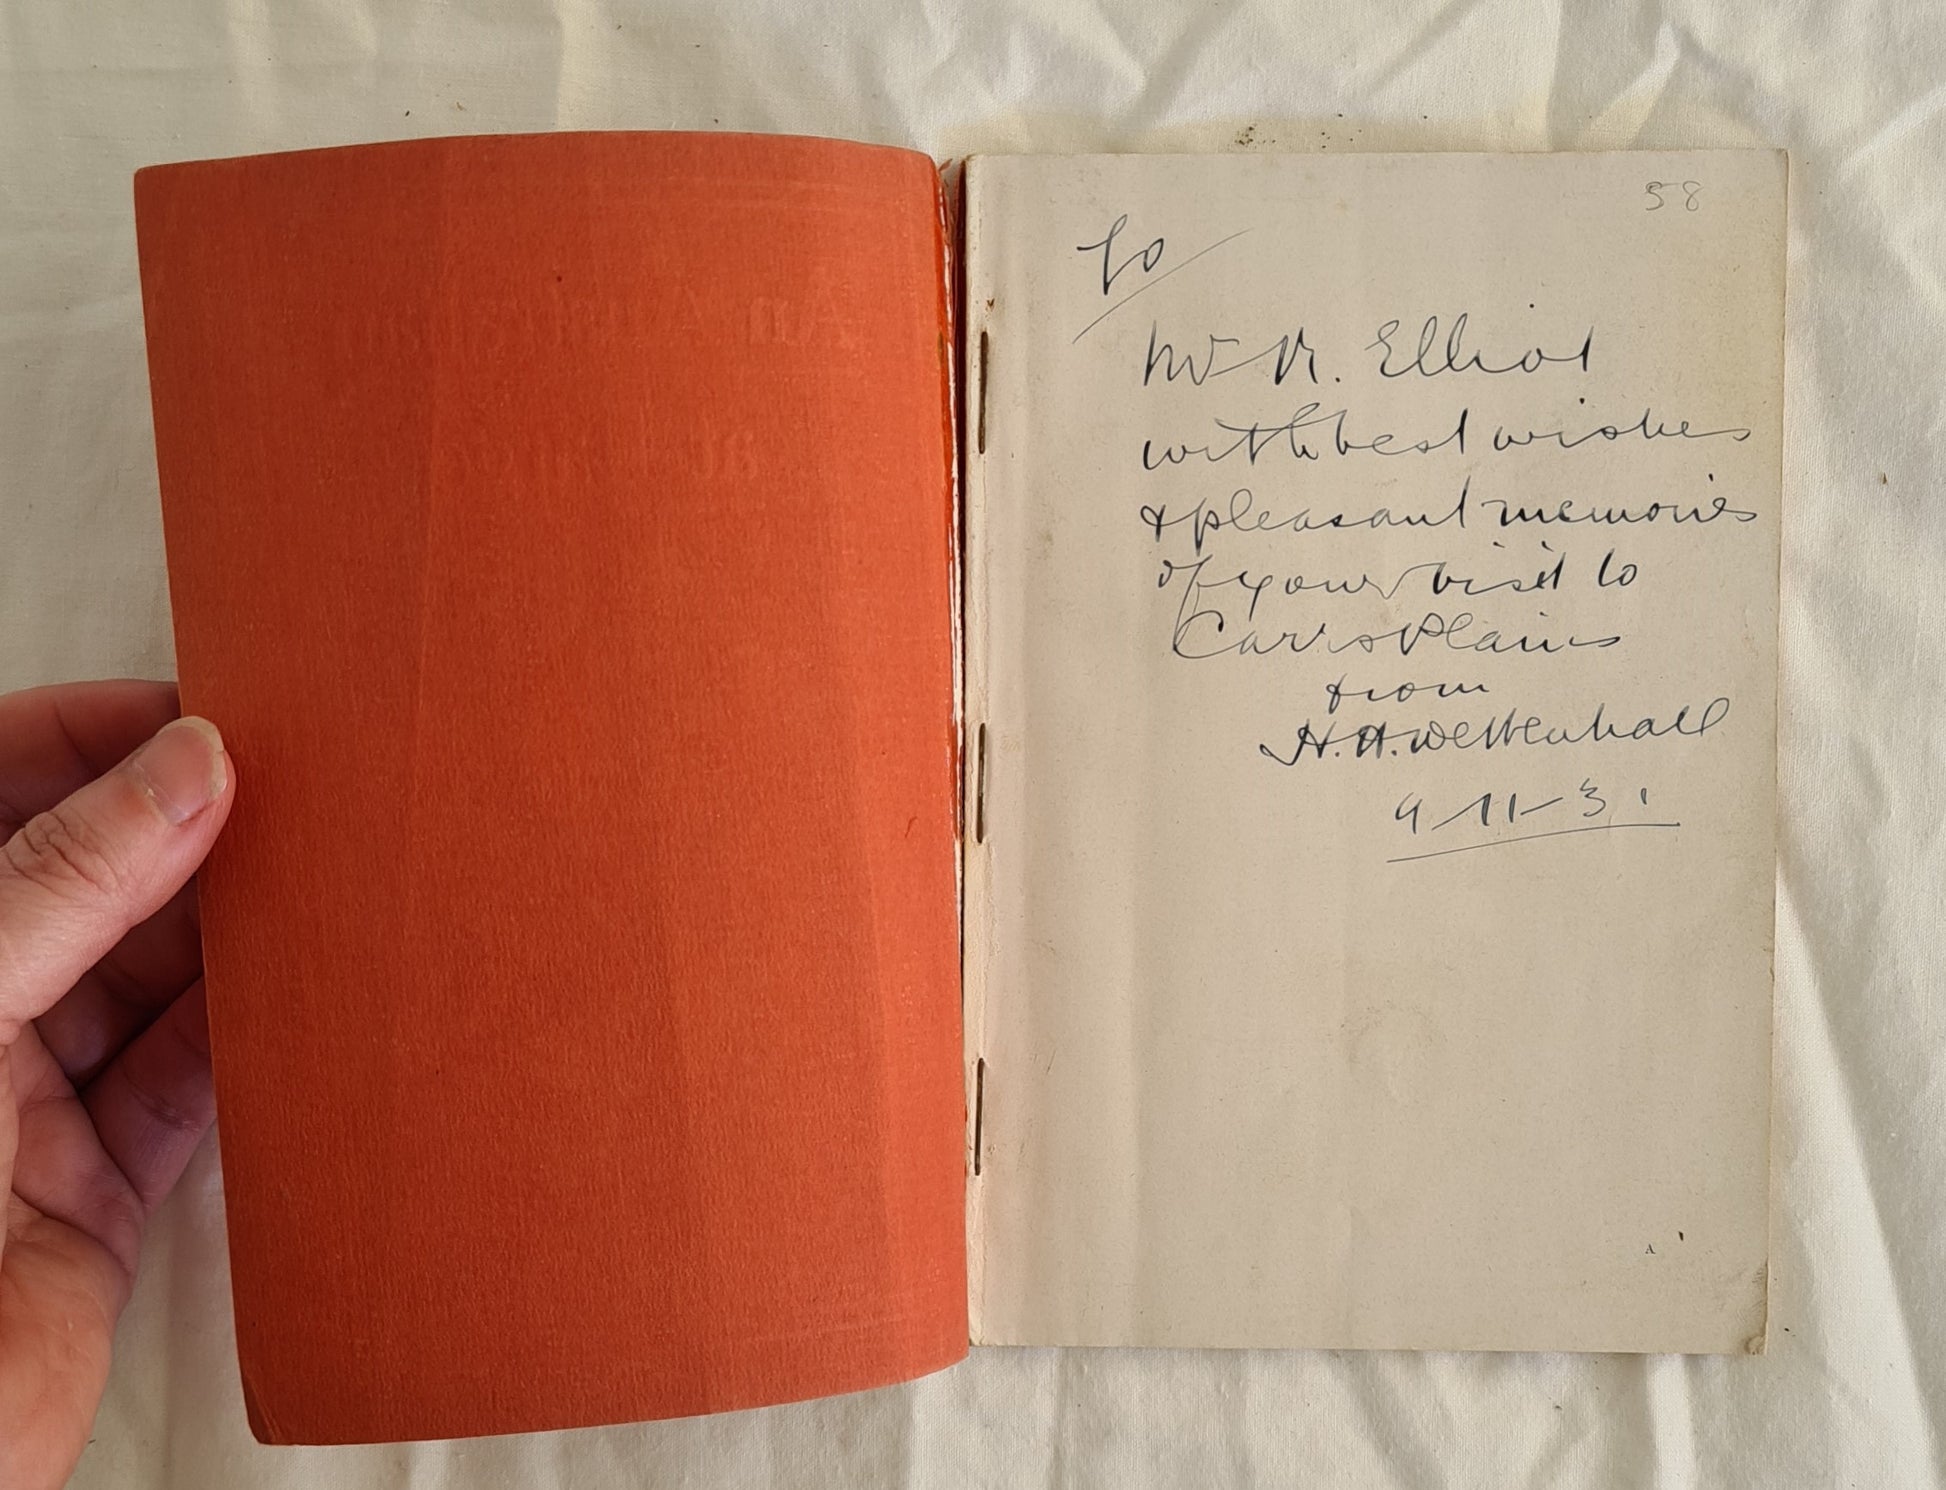 58
To
Mr R. Elliot
with best wishes
& pleasant memories
of your visit to
Carrs Plains
from
H. H. Wettenhall
9-11-31
A